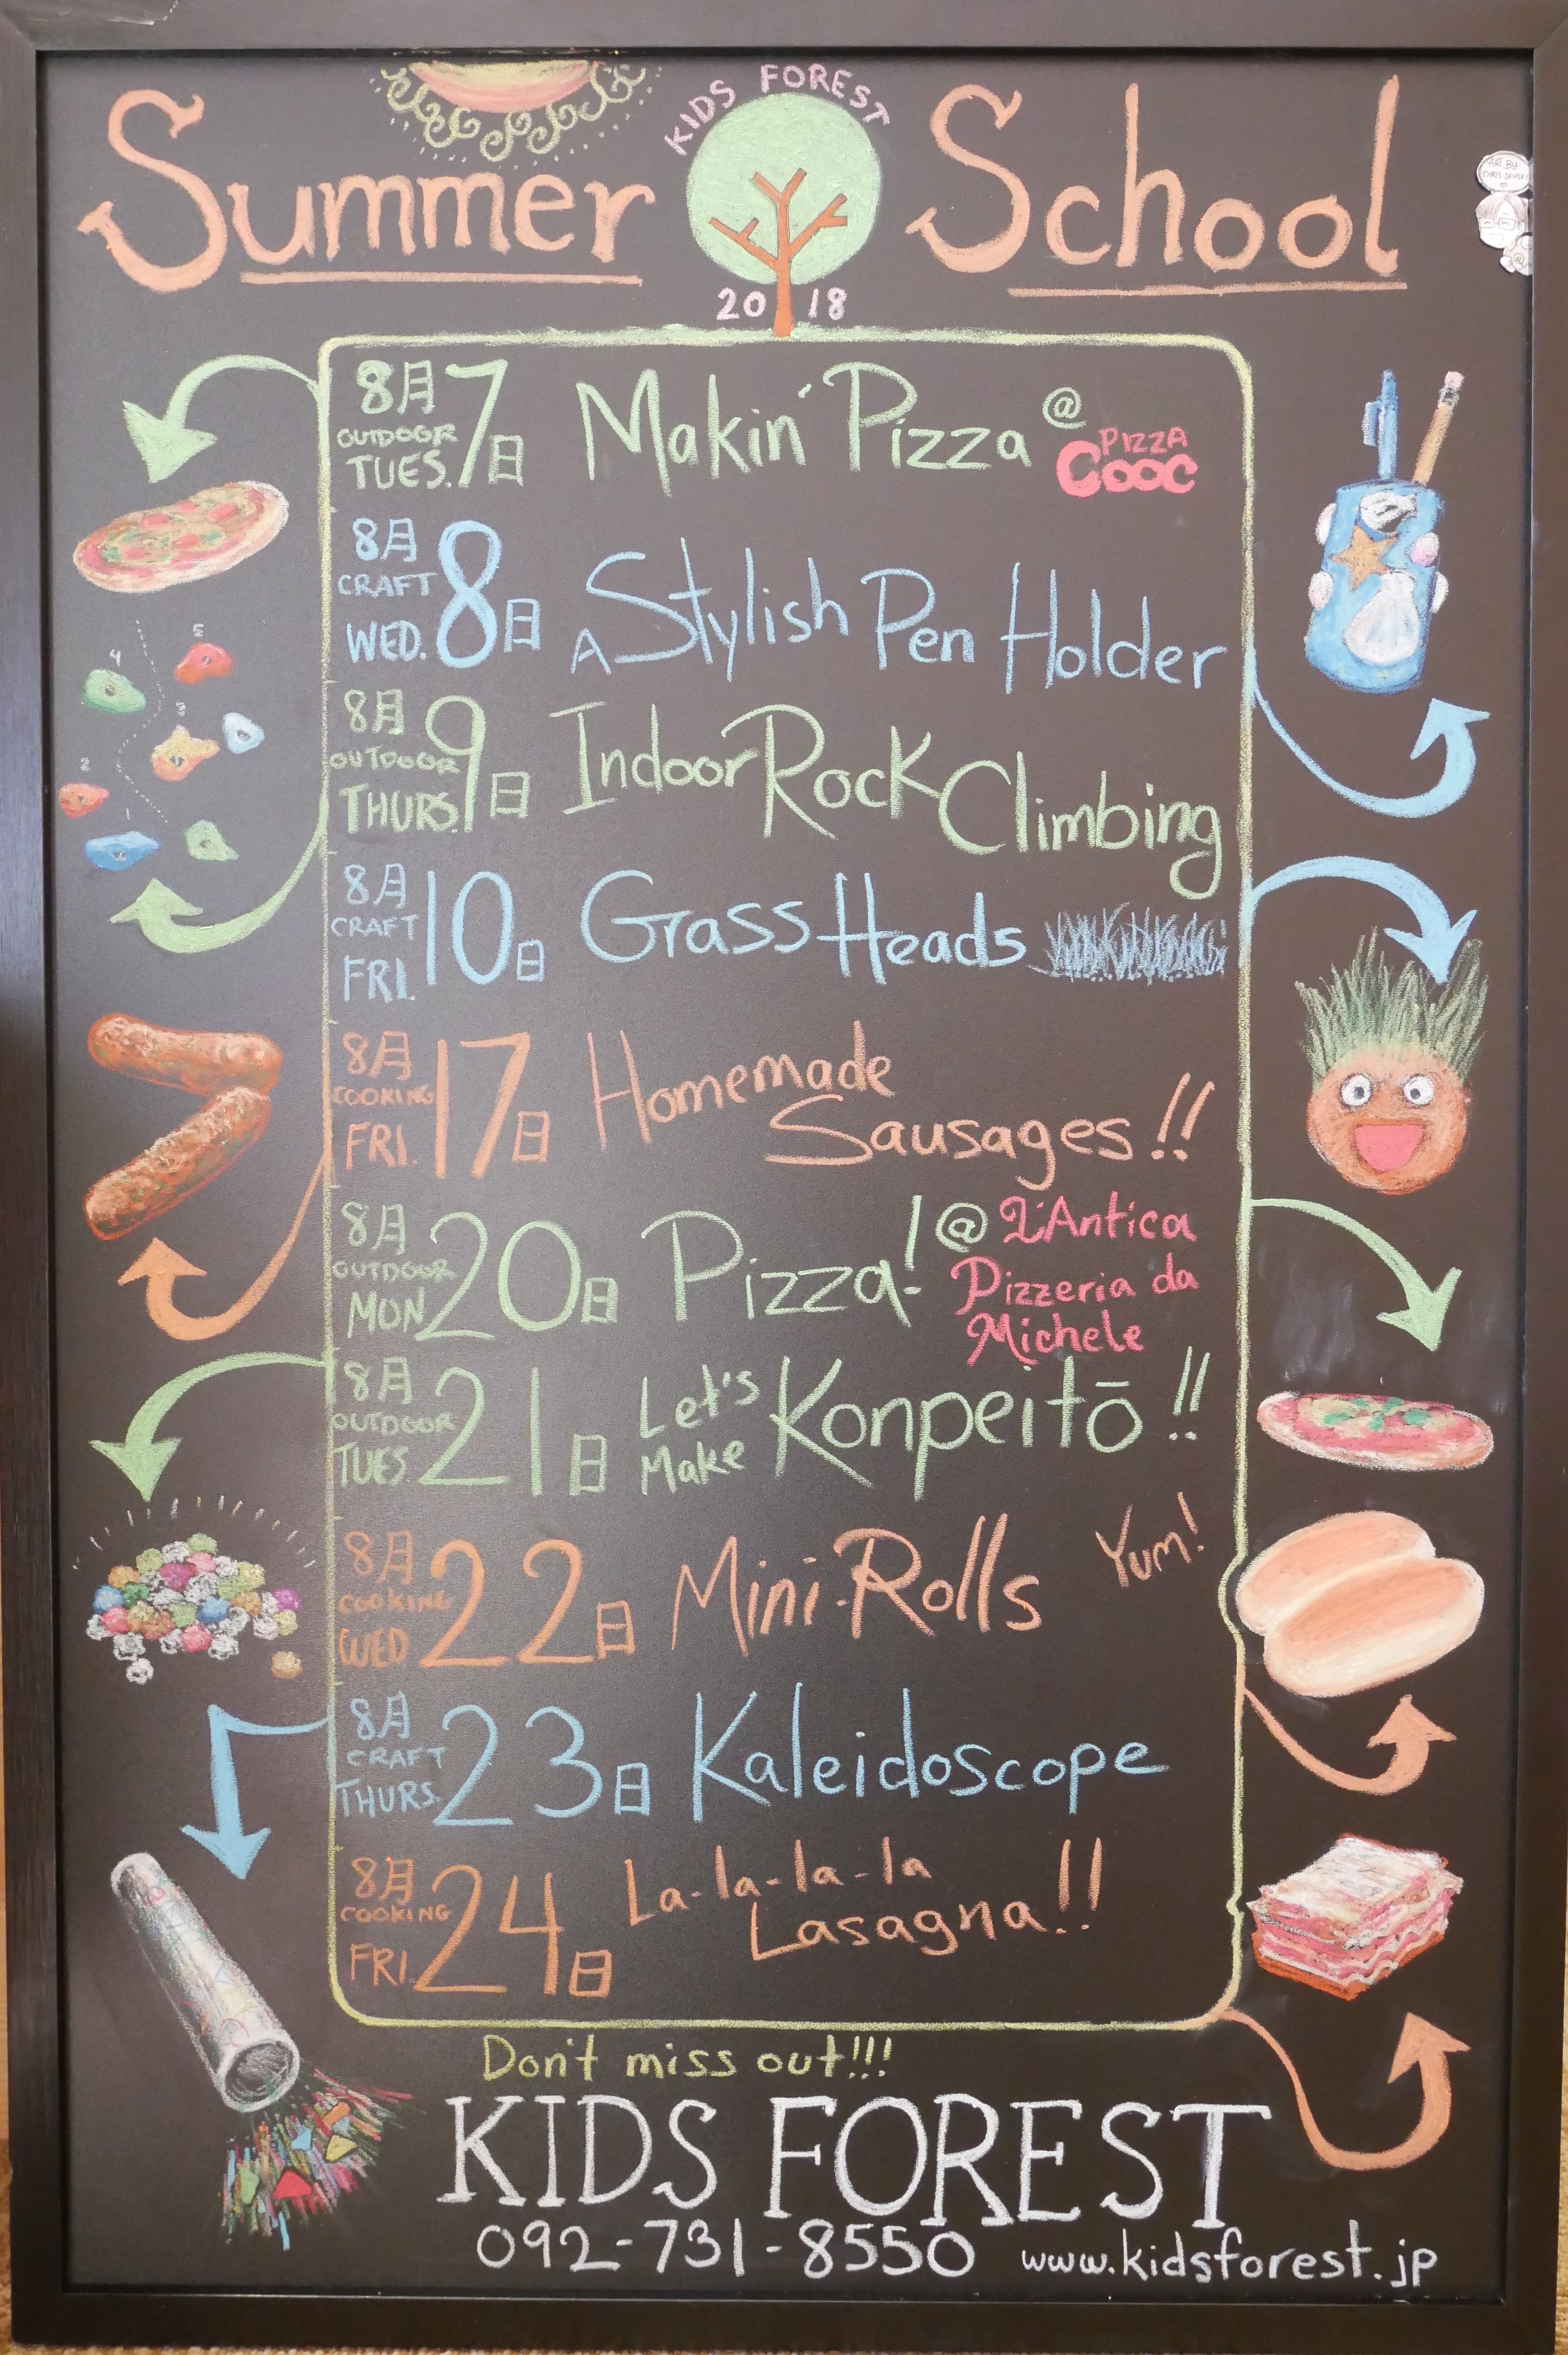 KIDS FOREST
Summer School
2018
ART BY
8月7日
OUTDOOR
TUES.
Makin' Pizza @
PIZZA
COOC
8月8日
CRAFT
WED.
A Stylish Pen Holder
8月9日
OUTDOOR
THURS.
Indoor Rock Climbing
8月10日
CRAFT
FRI.
Grass Heads
8月17日
COOKING
FRI.
Homemade
Sausages!!
8月20日
OUTDOOR
MON.
Pizza! @ L'Antica
Pizzeria da
Michele
8月21日
OUTDOOR
TUES.
Let's
Make
Konpeitō!!
8月22日
COOKING
WED.
Mini-Rolls
Yum!
8月23日
CRAFT
THURS.
Kaleidoscope
8月24日
COOKING
FRI.
La-la-la-la
Lasagna!!
5
4
3
2
1
Don't miss out!!!
KIDS FOREST
092-731-8550 www.kidsforest.jp